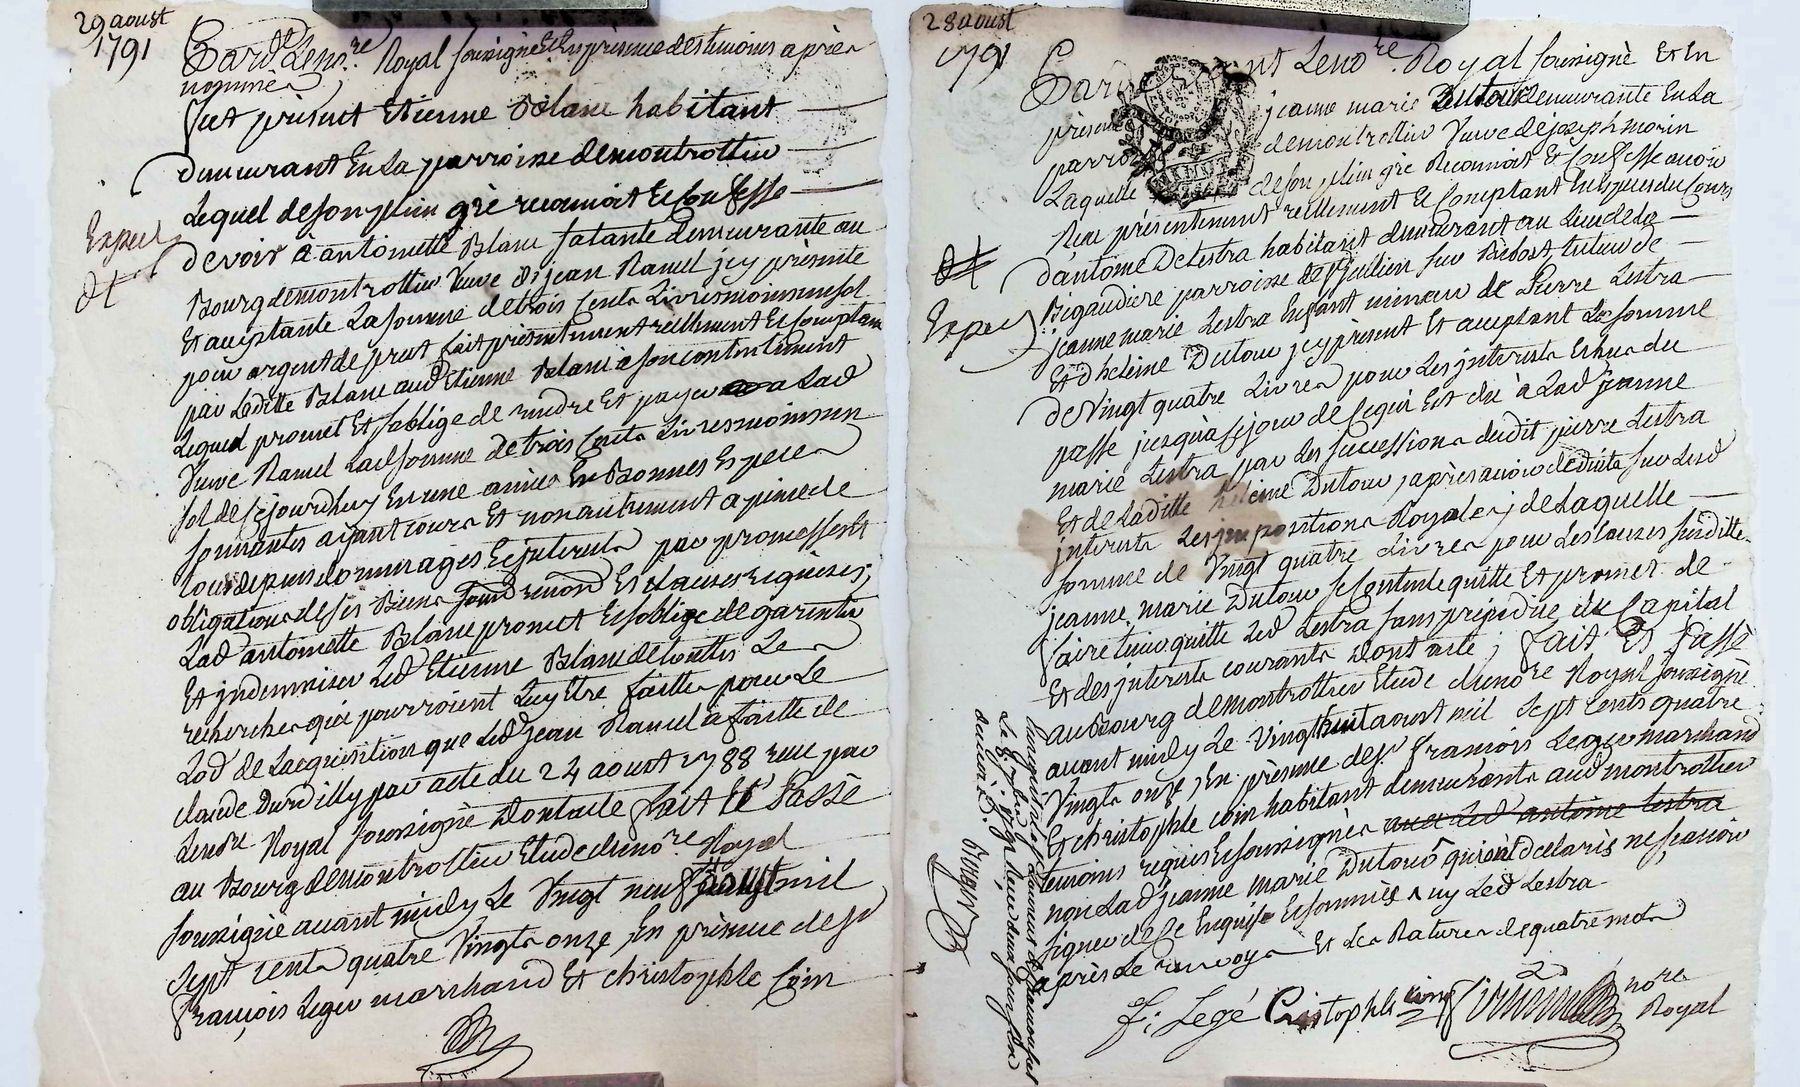 29 aoust
1791
Pard.t Leno.re Royal soussigné Et En présence des temoins apres
nommés
fut présent Etienne Blanc habitant
demeurant En La parroisse de montrottier
Lequel de son plein gré reconnoit Et Confesse
devoir à antoinette Blanc sa tante demeurante au
Bourg de montrottier Veuve de jean Ramel jcy présente
Et acceptante La somme de trois Cents Livres moins un sol
pour argent de prest fait présentement réellement Et Comptant
par Laditte Blanc aud Etienne Blanc à son contentement
Lequel promet Et soblige de rendre Et payer a Lad
Veuve Ramel Lad somme de trois Cents Livres moins un
sol de sejourdhuy En une année En Bonnes Especes
sonnantes ayant cours Et non autrement a peine de
tous depens dommages Et jnterests par promesse Et
obligations de ses Biens renond Et clauses requises;
Lad antoinette Blanc promet Et soblige de garentir
Et jndemniser Led Etienne Blanc de touttes Les
recherches qui pourroient Luy Etre faittes pour Le
Lod de Lacquisition que Led jean Ramel a faitte de
claude Durdilly par acte du 24 aoust 1788 reçu par
Leno.re Royal soussigné Dont acte fait Et Passé
au Bourg de montrottier Etude du no.re Royal
soussigné avant midy Le Vingt neuf aoust mil
sept cents quatre Vingts onze, En présence de sr
françois Leger marchand Et christophle Coin
Exped
dt
28 aoust
1791
Pard nt Leno.re Royal soussigné Et En
présence jeanne marie Dutour demeurante En La
parroi de montrottier Veuve de joseph morin
Laquelle de son plein gré Reconnoit Et Confesse avoir
Reçu présentement réellement Et Comptant En Espèces du Cours
d'antoine De Lestra habitant demeurant au Lieu de La
Bigaudiere parroisse de st jullien sur Bibost, tuteur de
jeanne marie Lestra Enfant mineur de Pierre Lestra
Et d'heleine Dutour jcy présent Et acceptant La somme
de Vingt quatre Livres pour Les jnterests Echus du
passé jusqu'à sejour de Ce qui Est du à Lad jeanne
marie Lestra par Les successions dudit pierre Lestra
Et de Laditte heleine Dutour, apres avoir deduits sur Lesd
jnterests Les jmpositions Royales; de Laquelle
somme de Vingt quatre Livres pour Les Causes susdittes
jeanne marie Dutour se Contente quitte Et promet de
faire tenir quitte Led Lestra sans prejudice du Capital
Et des jnterests courants Dont acte; fait Et Passé
au Bourg de montrottier Etude du no.re Royal soussigné
avant midy Le Vingt huit aoust mil sept Cents quatre
Vingts onze, En présence de sr françois Leger marchand
Et christophle coin habitant demeurants aud montrottier
temoins requis Et soussignés avec Led antoine Lestra
non Lad jeanne marie Dutour qui ont declarés ne sçavoir
signer de Ce Enquise Et sommés ny Led Lestra
après Le renvoy Et Les Ratures de quatre mots
F: Legé Cristophle coin no.re
Royal
dt
Exped